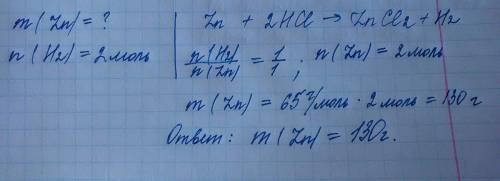 m(Zn) = ?
n(H2) = 2 моль
Zn + 2HCl → ZnCl2 + H2
n(H2)/n(Zn) = 1/1 ; n(Zn) = 2 моль
m(Zn) = 65 г/моль · 2 моль = 130 г
Ответ: m(Zn) = 130г.